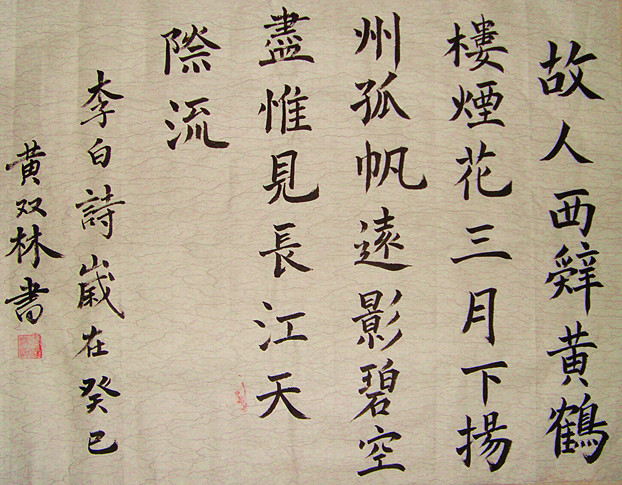 故人西辭黄鶴
樓煙花三月下揚
州孤帆遠影碧空
盡惟見長江天
際流
李白詩歲在癸巳
黄双林書